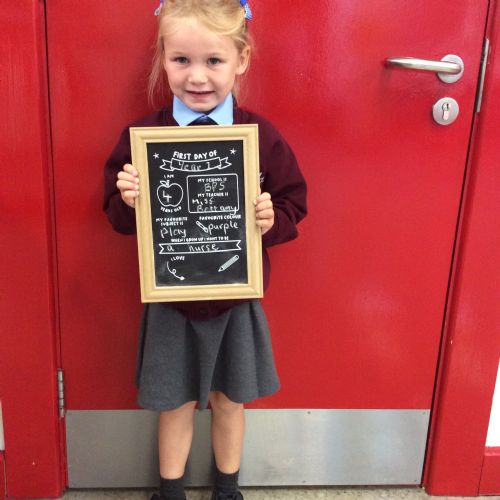 FIRST DAY OF
Year 1
I AM
4
YEARS OLD
MY SCHOOL IS
BPS
MY TEACHER IS
Miss
Bettany
MY FAVOURITE
SUBJECT IS
Play
FAVOURITE COLOUR
purple
WHEN I GROW UP I WANT TO BE
a nurse
I LOVE